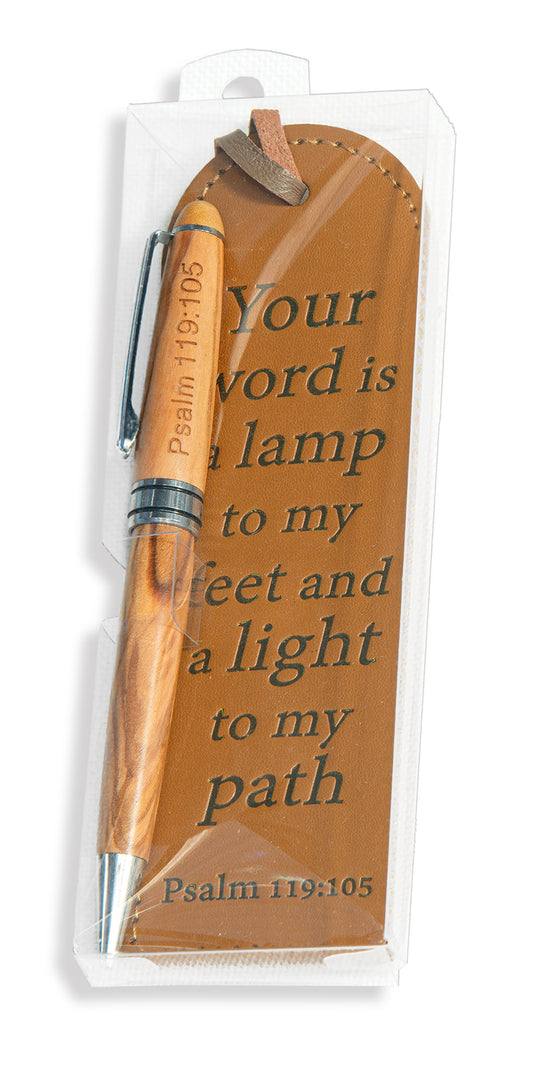 Psalm 119:105
Your
word is
a lamp
to my
feet and
a light
to my
path
Psalm 119:105